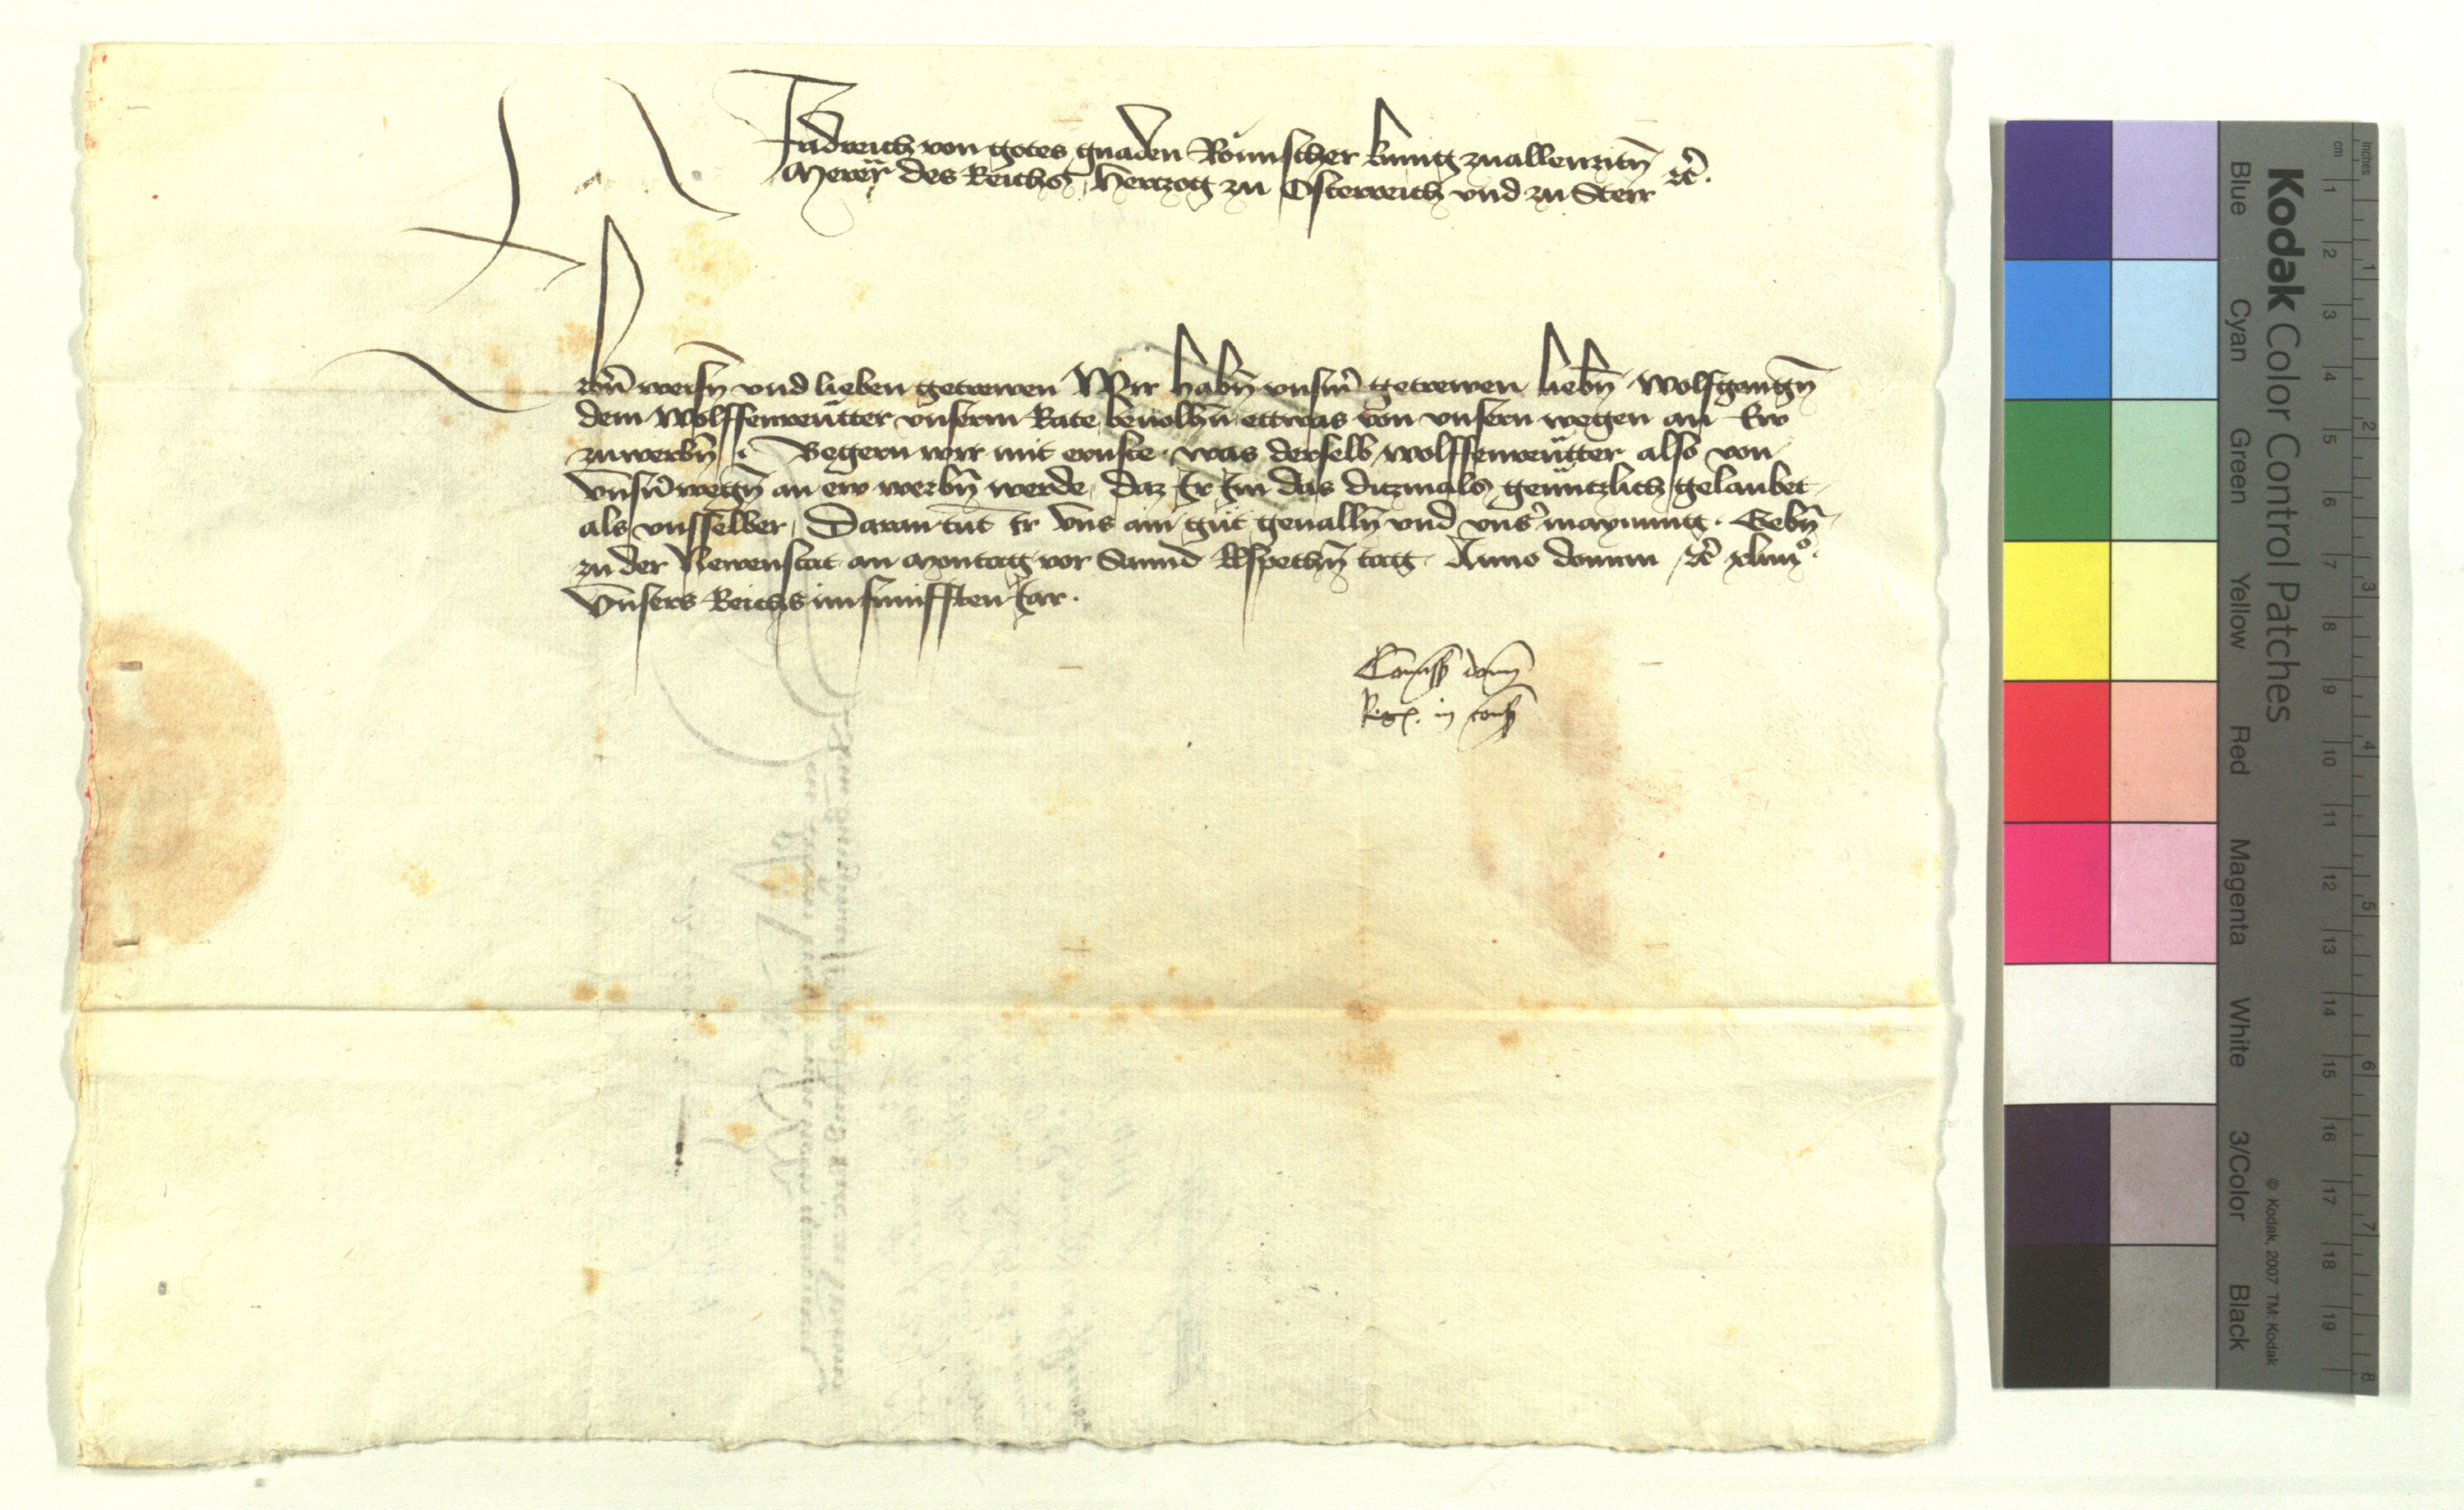 Fridreich von gotes gnaden Römischer kunig zuallenzitñ
Merer des Reichs, Hertzog zu Österreich und zu Steir ꝛc̃.
weisñ vnd lieben getrewen Wir habñ vnsm̃ getrewen liebñ Wolfgangñ
dem Wolffenreütter vnserm Rate beuolhñ ettwas von vnsern wegen an Ew
zuwerbñ . Begern wir mit ernste was derselb wolffenreütter also von
vnsñ wegñ an ew werbñ werde, daz Ir Im das ditzmals genntzlich gelaubet
als vnsselber, Daran tut Ir vns ain gut geuallñ vnd vnsˀ maynung. Gebñ
zu der Newenstat an Montag vor Sannd tag Anno domini ꝛc̃ xliiiio.
Vnsers Reichs im funfften Jar.
Kodak Color Control Patches
Blue Cyan Green Yellow Red Magenta White 3/Color Black
© Kodak, 2007 TM: Kodak
cm 1 2 3 4 5 6 7 8 9 10 11 12 13 14 15 16 17 18 19
inches 1 2 3 4 5 6 7 8